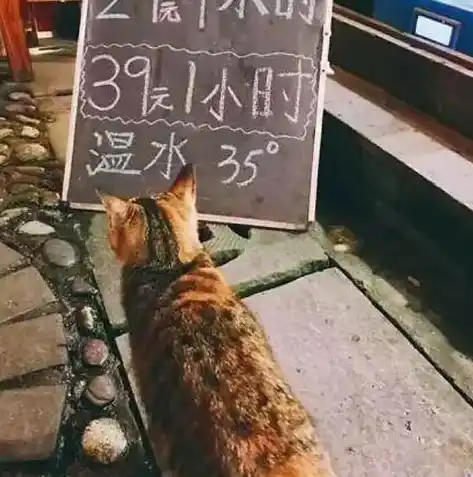 元1小时
39元1小时
温水 35°